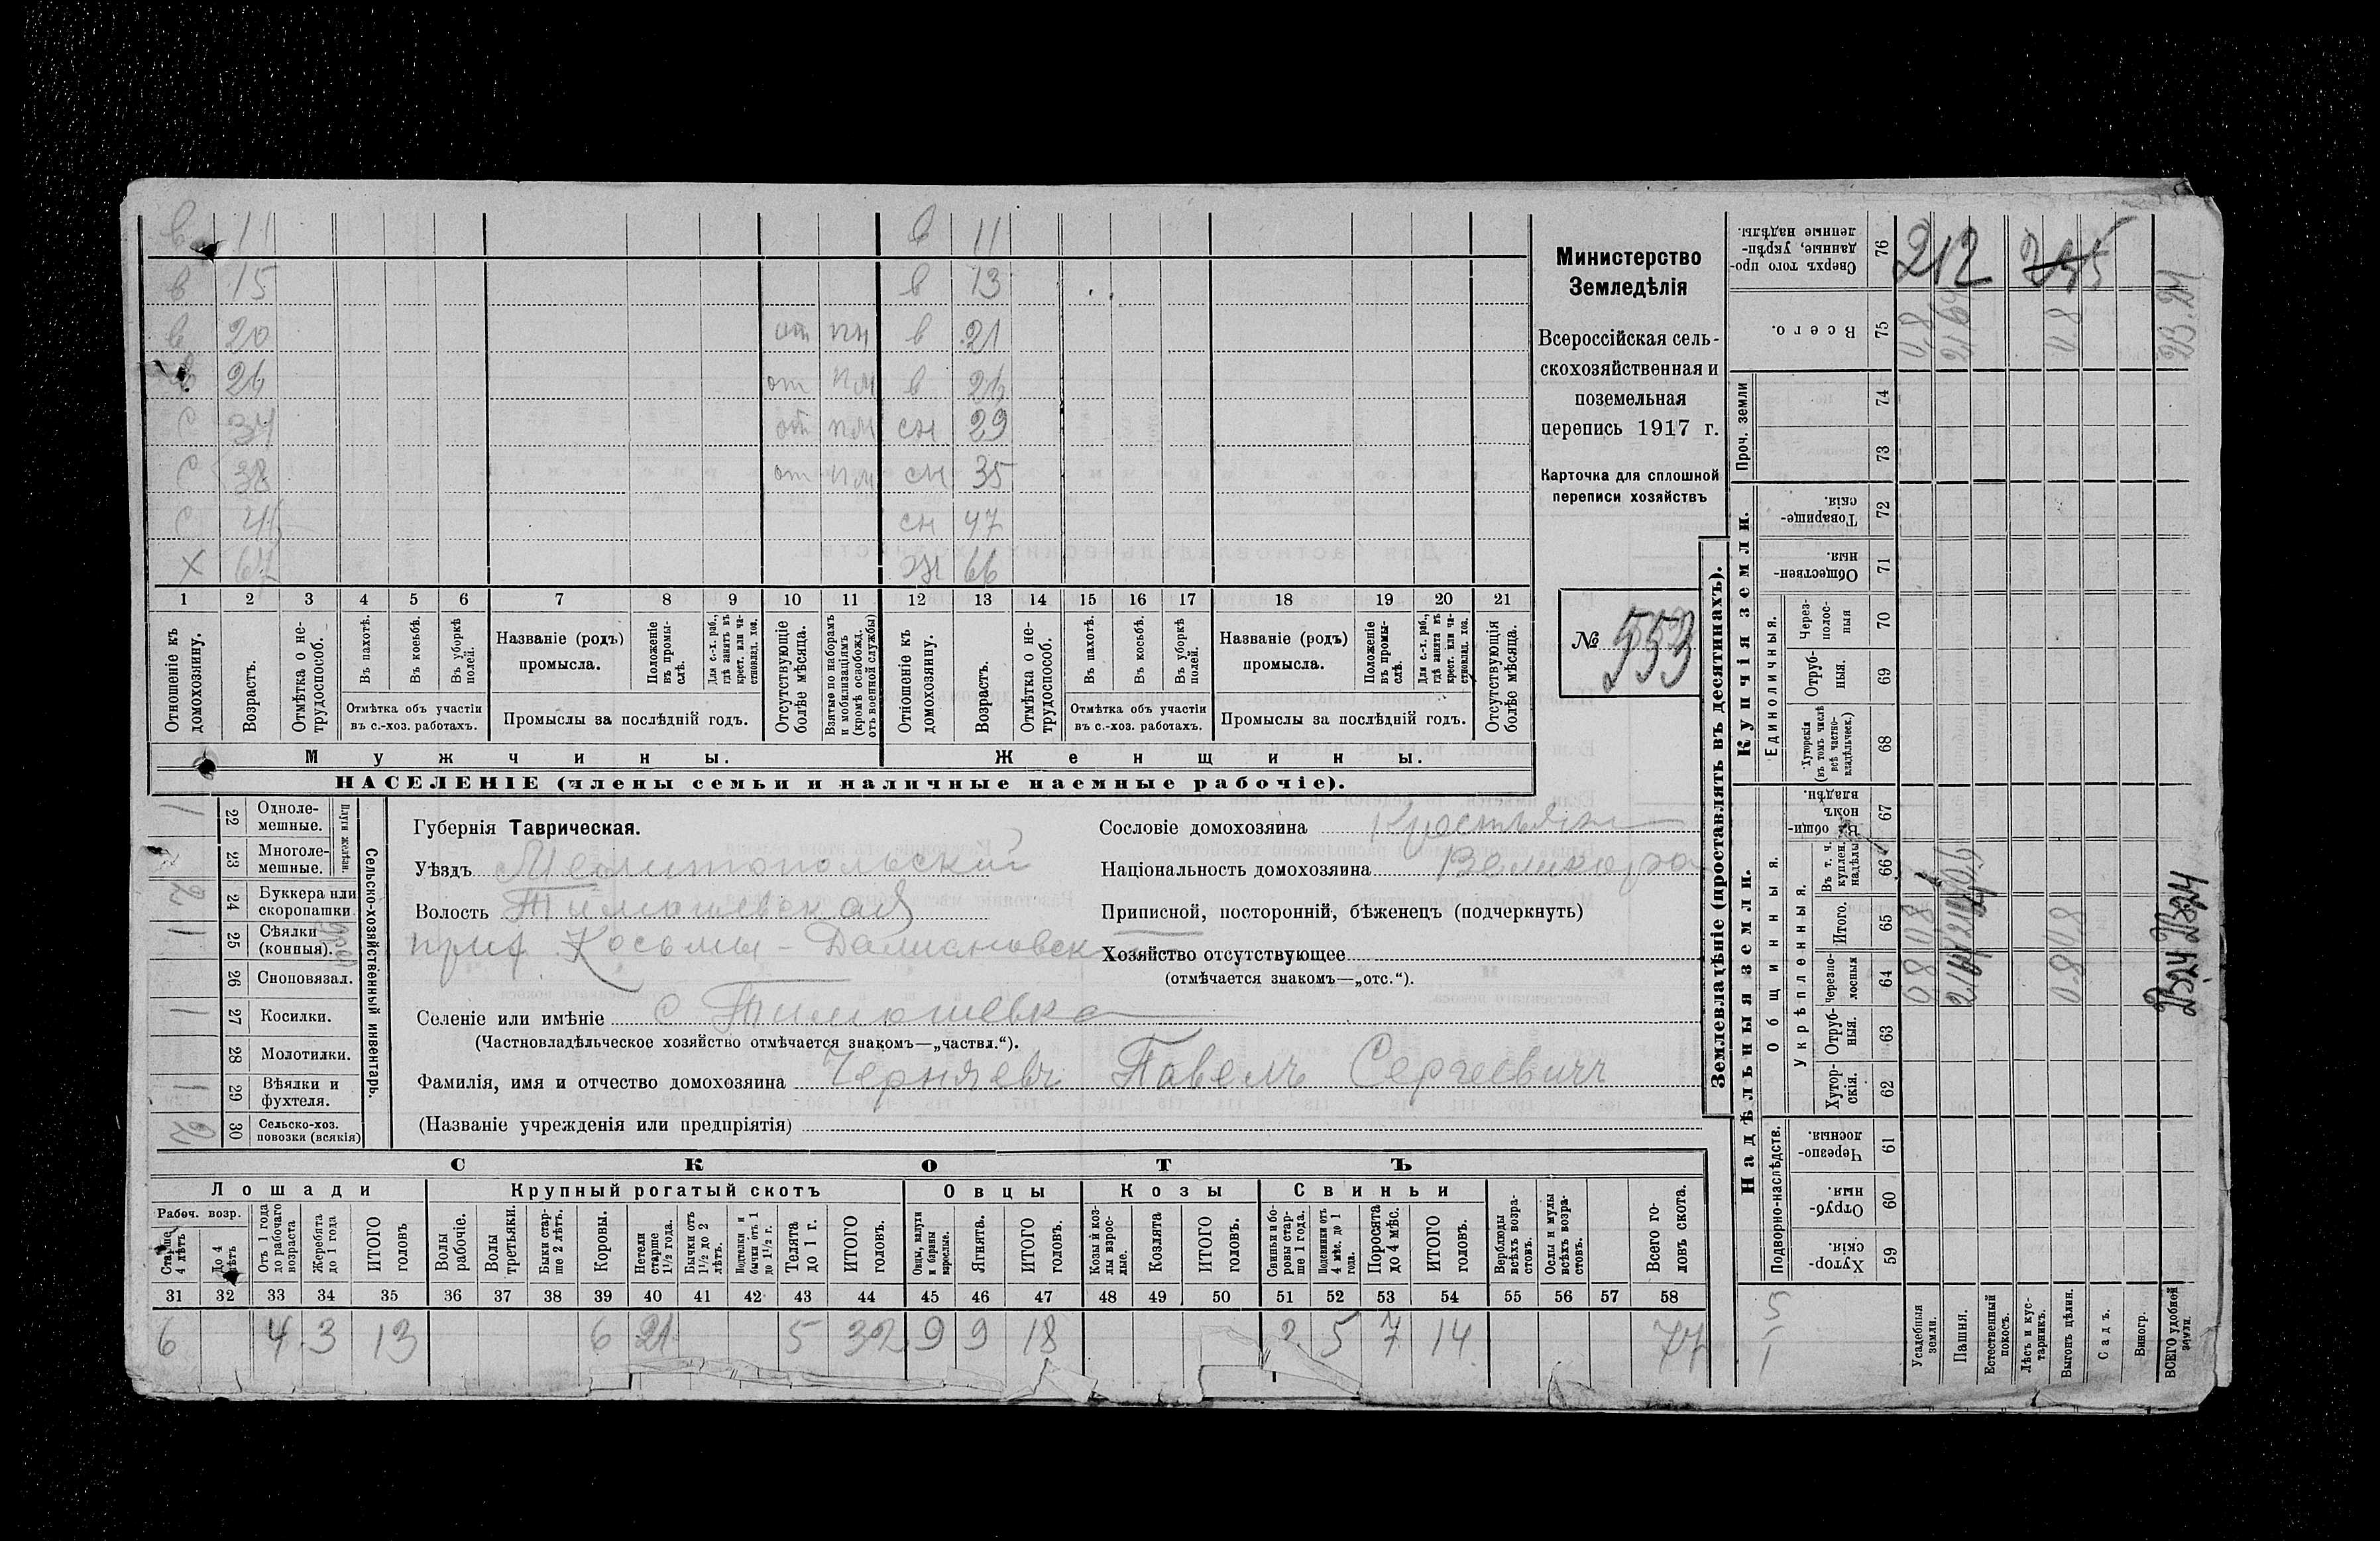 в 11 в 11
в 15 в 13
в 20 от пн в 21
в 26 от пм в 26
с 34 от пм сн 29
с 38 от пм сн 35
с сн 47
х 67 ж 66
1 2 3 4 5 6 7 8 9 10 11 12 13 14 15 16 17 18 19 20 21
Отношеніе къ домохозяину.
Возрастъ.
Отмѣтка о не-трудоспособ.
Въ пахотѣ.
Въ косьбѣ.
Въ уборкѣ полей.
Отмѣтка объ участіи
въ с.-хоз. работахъ.
Названіе (родъ)
промысла.
Положеніе въ промы-слѣ.
Для с.-х. раб., гдѣ занятъ въ крест. или ча-стновлад. хоз.
Промыслы за послѣдній годъ.
Отсутствующіе болѣе мѣсяца.
Взятые по наборамъ и мобилизаціямъ (кромѣ освобожд. отъ военной службы)
Отношеніе къ домохозяину.
Возрастъ.
Отмѣтка о не-трудоспособ.
Въ пахотѣ.
Въ косьбѣ.
Въ уборкѣ полей.
Отмѣтка объ участіи
въ с.-хоз. работахъ.
Названіе (родъ)
промысла.
Положеніе въ промы-слѣ.
Для с.-х. раб., гдѣ занята въ крест. или ча-стновлад. хоз.
Промыслы за послѣдній годъ.
Отсутствующія болѣе мѣсяца.
Мужчины. Женщины.
НАСЕЛЕНІЕ (члены семьи и наличные наемные рабочіе).
Министерство
Земледѣлія
Всероссійская сель-
скохозяйственная и
поземельная
перепись 1917 г.
Карточка для сплошной
переписи хозяйствъ
№ 553
Сельско-хозяйственный инвентарь.
Плуги желѣзн.
1 22 Одноле-мешные.
23 Многоле-мешные.
2 24 Буккера или скоропашки
1 25 Сѣялки (конныя).
26 Сноповязал.
1 27 Косилки.
28 Молотилки.
1 29 Вѣялки и фухтеля.
2 30 Сельско-хоз. повозки (всякія)
Губернія Таврическая.
Уѣздъ Мелитопольскій
Волость Тимошевская
прих Косьмы-Даміановск
Селеніе или имѣніе с Тимошевка
(Частновладѣльческое хозяйство отмѣчается знакомъ—„частвл.“).
Фамилія, имя и отчество домохозяина Черняевъ Павелъ Сергеевичъ
(Названіе учрежденія или предпріятія)
Сословіе домохозяина Крестьянин
Національность домохозяина Великоро
Приписной, посторонній, бѣженецъ (подчеркнуть)
Хозяйство отсутствующее
(отмѣчается знакомъ—„отс.“).
СКОТЪ
Лошади Крупный рогатый скотъ Овцы Козы Свиньи
Рабоч. возр.
Старше 4 лѣтъ
До 4 лѣтъ
Отъ 1 года до рабочаго возраста
Жеребята до 1 года
ИТОГО головъ
Волы рабочіе.
Волы третьяки.
Быки стар-ше 2 лѣтъ.
Коровы.
Нетели старше 1½ года.
Бычки отъ 1½ до 2 лѣтъ.
Подтелки и бычки отъ 1 до 1½ г.
Телята до 1 г.
ИТОГО головъ.
Овцы, валухи и бараны взрослые.
Ягнята.
ИТОГО головъ.
Козы и коз-лы взрос-лые.
Козлята
ИТОГО головъ.
Свиньи и бо-ровы стар-ше 1 года.
Подсвинки отъ 4 мѣс. до 1 года.
Поросята до 4 мѣс.
ИТОГО головъ.
Верблюды всѣхъ возра-стовъ.
Ослы и мулы всѣхъ возра-стовъ.
Всего го-ловъ скота.
31 32 33 34 35 36 37 38 39 40 41 42 43 44 45 46 47 48 49 50 51 52 53 54 55 56 57 58
6 4 3 13 6 21 5 32 9 9 18 2 5 7 14 77
Землевладѣніе (проставлять въ десятинахъ).
Сверхъ того про-данные, укрѣп-ленные надѣлы. 76 212
Всего. 75
Проч. земли 74
73
Купчія земли.
Товарище-скія. 72
Обществен-ныя. 71
Единоличныя.
Через-полос-ныя 70
Отруб-ныя. 69
Хуторскія (въ томъ числѣ всѣ частно-владѣльческ.) 68
Надѣльныя земли.
Общинныя.
Въ общи-номъ владѣн. 67
Укрѣпленныя.
Въ т. ч. куплен. надѣлы 66
Итого. 65
Черезпо-лосныя 64
Отруб-ныя. 63
Хутор-скія. 62
Подворно-наслѣдств.
Черезпо-лосныя. 61
Отруб-ныя. 60
Хутор-скія. 59
5
1
Усадебныя земли.
Пашня.
Естественный покосъ.
Лѣсъ и кус-тарникъ.
Выгонъ цѣлин.
Садъ.
Виногр.
ВСЕГО удобной земли.